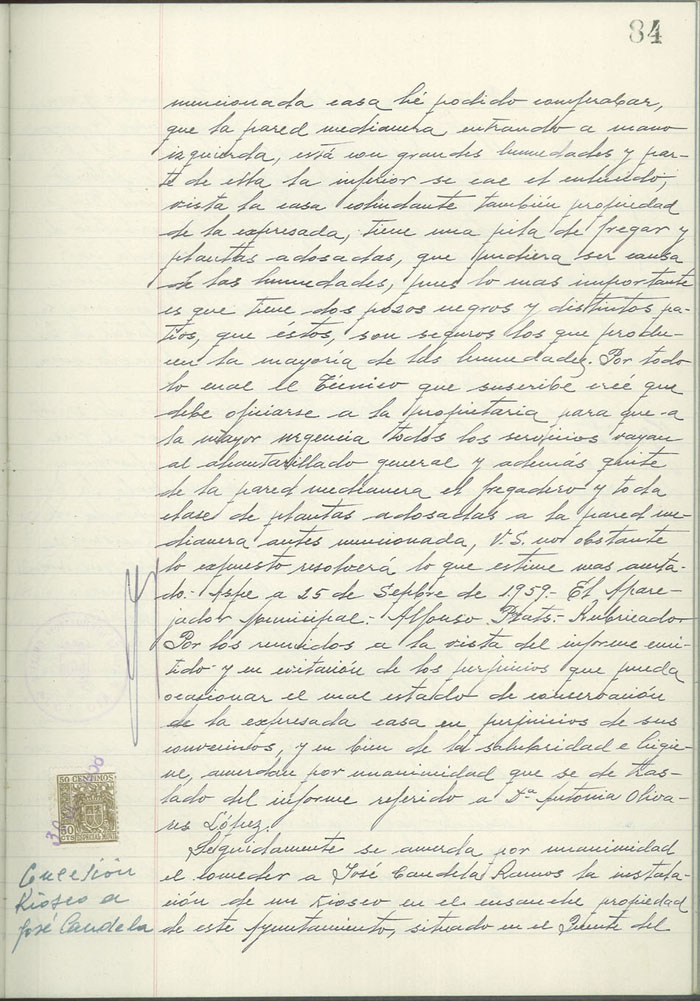 84
mencionada casa hé podido comprobar,
que la pared medianera entrando a mano
izquierda, está con grandes humedades y par-
te de esta la inferior se cae el enlucido,
vista la casa colindante también propiedad
de la expresada, tiene una pila de fregar y
plantas adosadas, que pudiera ser causa
de las humedades, pues lo mas importante
es que tiene dos pozos negros y distintos pa-
tios, que éstos, son seguros los que produ-
cen la mayoría de las humedades. Por todo
lo cual el Técnico que suscribe creé que
debe oficiarse a la propietaria para que a
la mayor urgencia todos los servicios vayan
al alcantarillado general y además quite
de la pared medianera el fregadero y toda
clase de plantas adosadas a la pared me-
dianera antes mencionada, V.S. no obstante
lo expuesto resolverá lo que estime mas acerta-
do.- Aspe a 25 de Sepbre de 1.959.- El Apare-
jador Municipal.- Alfonso Prats.- Rubricado.
Por los reunidos a la vista del informe emi-
tido y en evitación de los perjuicios que pueda
ocasionar el mal estado de conservación
de la expresada casa en perjuicios de sus
convecinos, y en bien de la salubridad e higie-
ne, acuerdan por unanimidad que se de tras-
lado del informe referido a Dª Antonia Oliva-
res López.
Seguidamente se acuerda por unanimidad
el conceder a José Candela Ramos la instala-
ción de un Kiosco en el ensanche propiedad
de este Ayuntamiento, situado en el Puente del
50 CENTIMOS
50
CTS
ESPECIAL MOVIL
Concesión
Kiosco a
José Candela